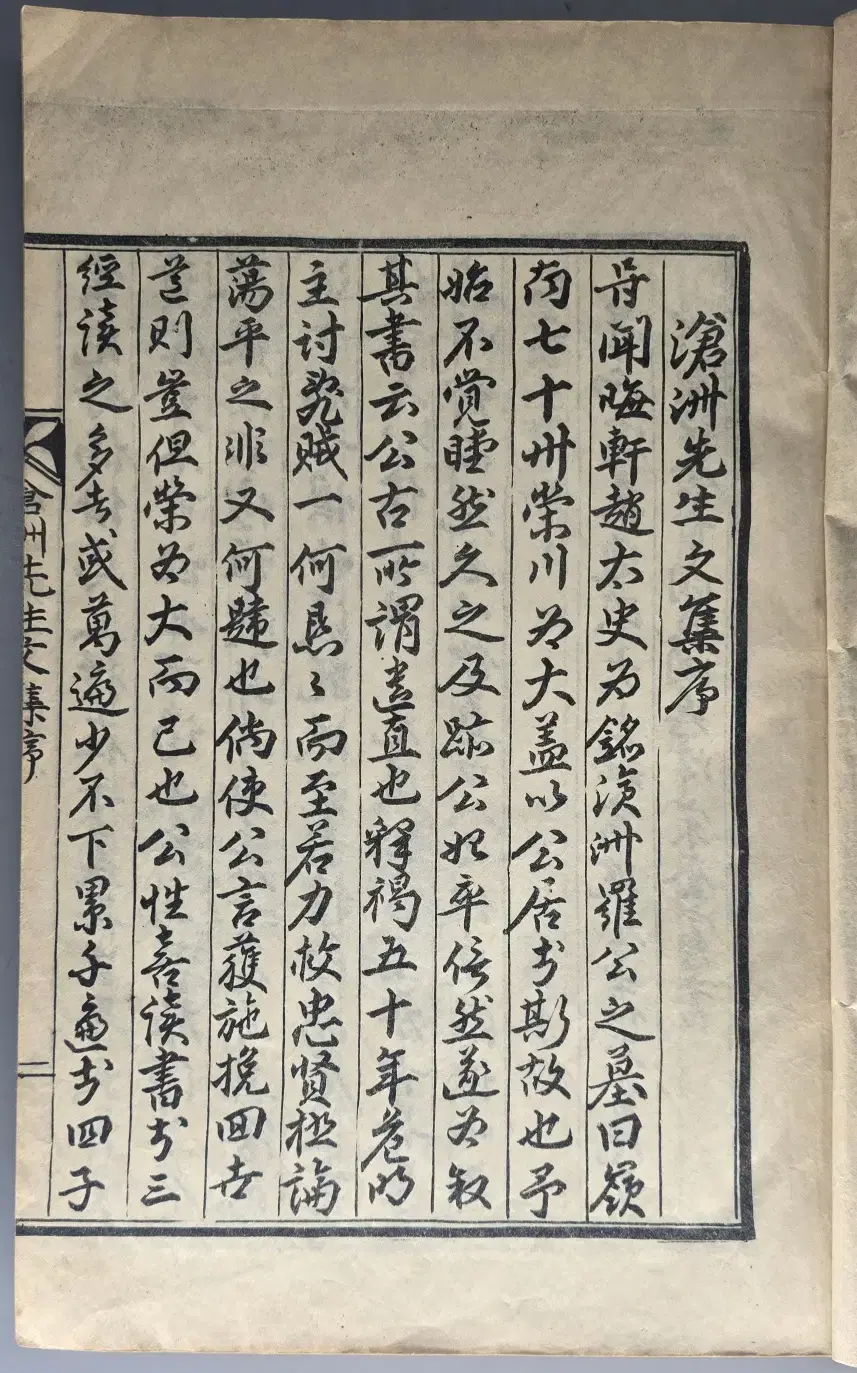 滄洲先生文集序
聞晦軒趙太史为銘滄洲羅公之墓曰嶺
南七十州榮川为大蓋以公居於斯故也予
始不覺瞠然久之及跡公始卒信然遂为叙
其書云公古所謂遺直也釋褐五十年危明
主討兇賊一何懇〻而至若力救忠賢極論
蕩平之非又何韙也倘使公言獲施挽回世
道則豈但榮为大而已也公性喜讀書於三
經讀之多者或萬遍少不下累千遍於四子
滄洲先生文集序
二